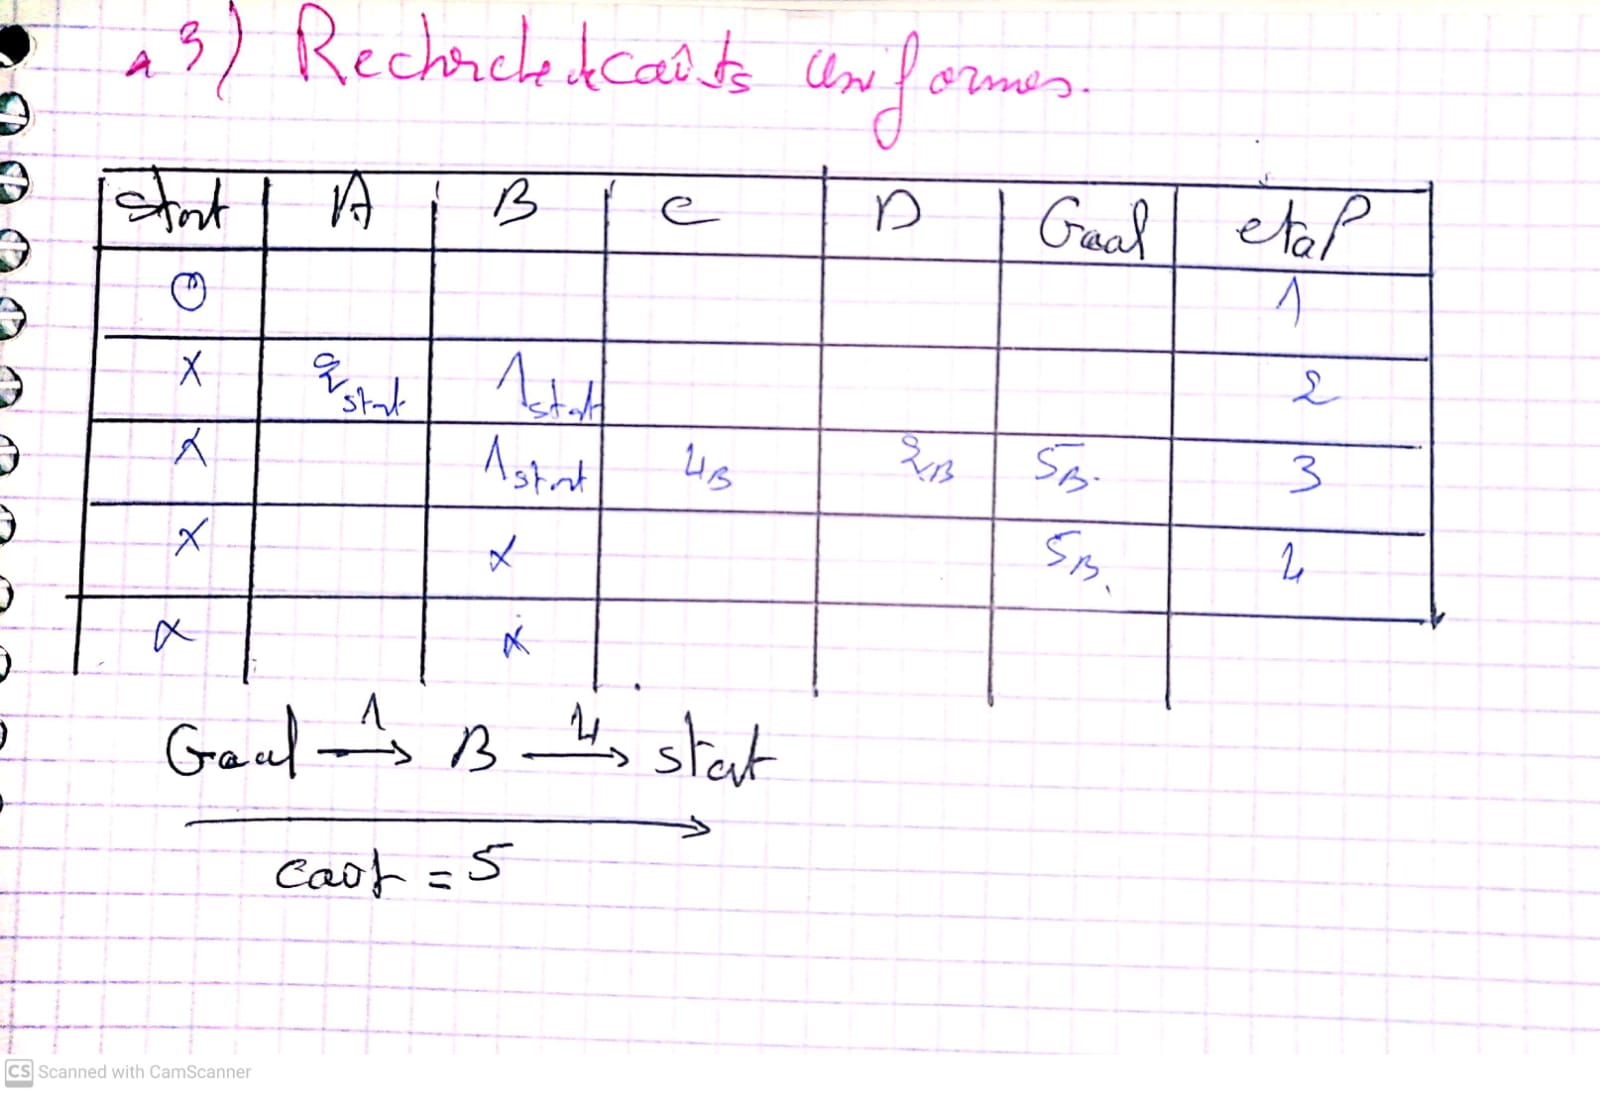 3) Recherche de coûts uniformes.
start A B C D Goal etap
0 1
x 2 start 1 start 2
x 1 start 4B 2B 5B. 3
x x 5B. 4
x x
Goal 1→ B 4→ start
coot = 5
CS Scanned with CamScanner